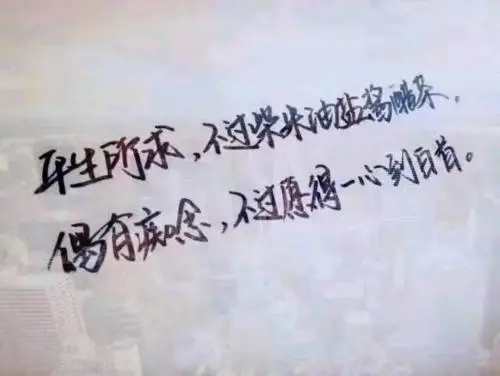 平生所求,不过柴米油盐酱醋茶。
偶有痴念,不过愿得一心到白首。